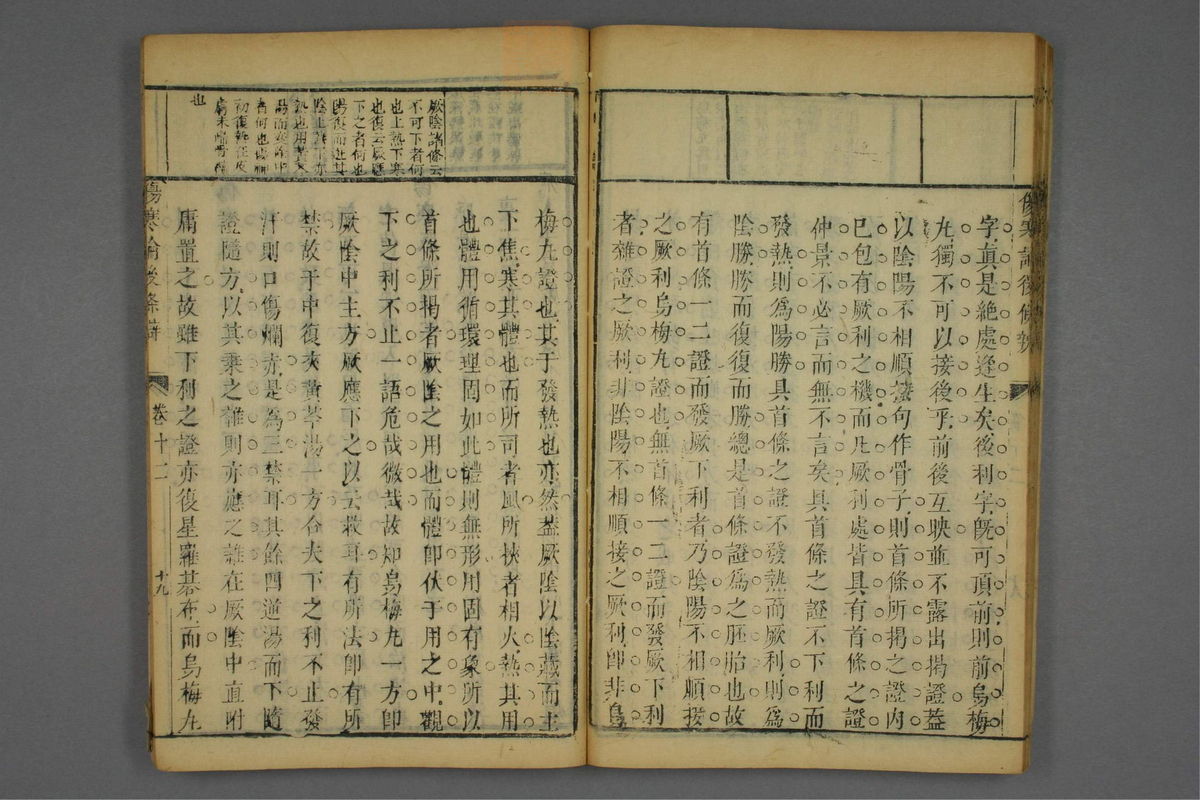 字真是絶處逢生矣後利字旣可頂前則前烏梅
丸獨不可以接後乎前後互映並不露出揭證蓋
以陰陽不相順接句作骨子則首條所揭之證內
已包有厥利之機而凡厥利處皆具有首條之證
仲景不必言而無不言矣具首條之證不下利而
發熱則爲陽勝具首條之證不發熱而厥利則爲
陰勝勝而復復而勝總是首條證爲之胚胎也故
有首條一二證而發厥下利者乃陰陽不相順接
之厥利烏梅丸證也無首條一二證而發厥下利
者雜證之厥利非陰陽不相順接之厥利卽非烏
傷寒論後條辨
厥陰諸條云
不可下者何
也上熱下寒
也復云厥應
下之者何也
陽復而
也
梅丸證也其于發熱也亦然蓋厥陰以陰藏而主
下焦寒其體也而所司者風所挾者相火熱其用
也體用循環理固如此體則無形用固有象所以
首條所揭者厥陰之用也而體卽伏于用之中觀
下之利不止一語危哉微哉故知烏梅丸一方卽
厥陰中主方厥應下之以去救耳有所法卽有所
禁故于中復夾黃芩湯一方合夫下之利不止發
汗則口傷爛赤是為三禁耳其餘四逆湯而下隨
證隨方以其乘之雜則亦應之雜在厥陰中直附
庸置之故雖下利之證亦復星羅棊布而烏梅丸
傷寒論後條辨
卷十二
十九